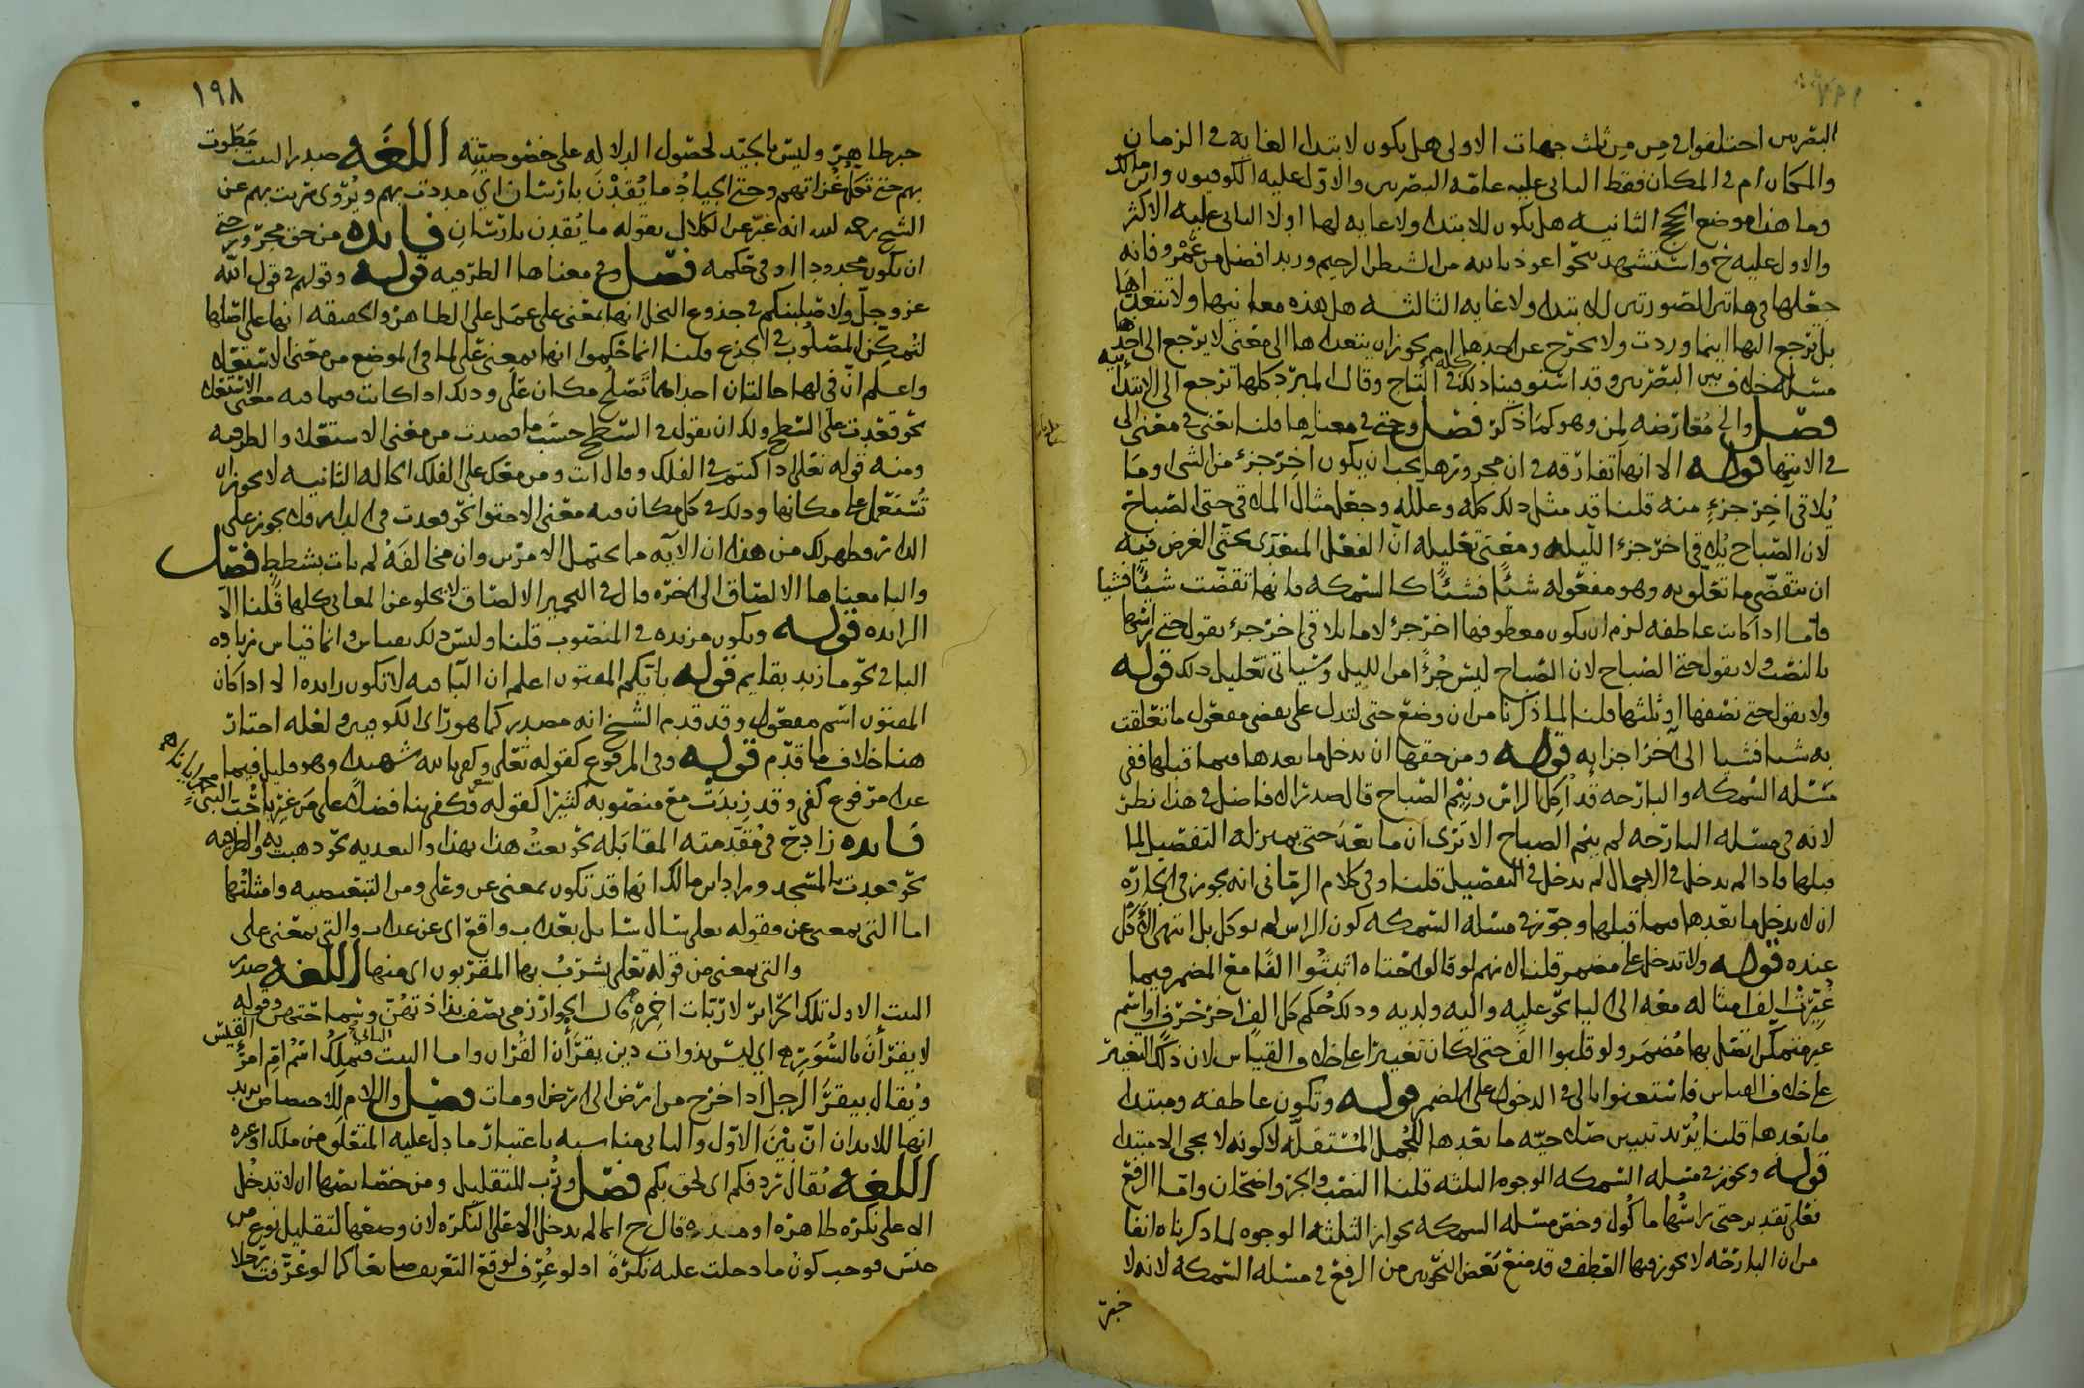 البصريين اختلفوا في من من ثلث جهات الاولى هل يكون لابتداء الغاية في الزمان
والمكان ام في المكان فقط الثاني عليه عامة البصريين والاول عليه الكوفيون وابن مالك
وما هذا موضع الحجج الثانيه هل يكون للابتداء ولا غايه لها اولا الثاني عليه الاكثر
والاول عليه خ واستشهد بنحو اعوذ بالله من الشيطان الرجيم وزيد افضل من عمرو فانه
جعلها في هاتين الصورتين للابتداء ولا غايه الثالثه هل هذه معانيها ولا تتعداها
بل ترجع اليها اينما وردت ولا تخرج عن احدها ام يجوز ان يتعداها الى معنى لا يرجع الى احدها
مسئلة خلاف بين البصريين وقد استوفينا ذلك في التاج وقال المبرد كلها ترجع الى الابتدائيه
فصل والى معارضه لمن وهو كما ذكر فصل وحتى في معناها قلنا يعني في معنى الى
في الانتها قوله الا انها تفارقه في ان مجرورها يجب ان يكون آخر جزء من الشى او ما
يلاقي آخر جزء منه قلنا قد مثل ذلك كله وعلله وجعل مثال الملاقي حتى الصباح
لان الصباح يلاقي اخر جزء الليله ومعنى تعليله ان الفعل المتعدى بحتى الغرض فيه
ان يتقضى ما تعلق به وهو مفعوله شيئا فشيئا كالسمكه فانها تقضت شيئا فشيئا
فاما اذا كانت عاطفه لزم ان يكون معطوفها اخر جزء لا ما يلاقي اخر جزء يقول حتى راسها
بالنصب ولا يقول حتى الصباح لان الصباح ليس جزءا من الليل وسياتي تعليل ذلك قوله
ولا يقول حتى نصفها او ثلثها قلنا لما ذكرنا من ان وضع حتى لتدل على تقضي مفعول ما تعلقت
به شيا فشيا الى آخر اجزايه قوله ومن حقها ان يدخل ما بعدها فيما قبلها ففي
مسئله السمكه والبارحه قد اكل الراس ونيم الصباح قال صدر الافاضل في هذا نظر
لانه في مسئله البارحه لم ينم الصباح الا ترى ان ما بعد حتى بمنزله التفصيل لما
قبلها فاذا لم يدخل في الاجمال لم يدخل في التفصيل قلنا وفي كلام الرماني انه يجوز في الجارة
ان لا يدخل ما بعدها فيما قبلها وجوز في مسئله السمكه كون الراس لم يوكل بل انتهى الاكل
عنده قوله ولا تدخل على مضمر قلنا لانهم لو قالوا حتاه اثبتوا الفا مع المضمر فيما
غيرت الف امثاله معه الى الياء نحو عليه واليه ولديه وذلك حكم كل الف اخر حرف او اسم
غير متمكن اتصل بها مضمر ولو قلبوا الف حتى لكان تغييرا على خلاف القياس لان ذلك التغيير
على خلاف القياس فاستغنوا بالى في الدخول على المضمر قوله وتكون عاطفه ومبتدا
ما بعدها قلنا يريد تبيين صلاحيه ما بعدها للجمل المستقلة لا كونه لا يجي الا مبتدا
قوله ويجوز في مسئله السمكه الوجوه الثلثه قلنا النصب والجر واضحان واما الرفع
فعلى تقدير حتى راسها ماكول وخص مسئله السمكه بجواز الثلثه الوجوه لما ذكرناه انفا
من ان البارحه لا يجوز فيها العطف وقد منع بعض النحويين من الرفع في مسئله السمكه لانه لا
خبر
١٩٨
خبر ظاهر وليس بالجيد لحصول الدلاله على خصوصيته اللغه صدر البيت مطوت
بهم حتى تكل غزاتهم وحتى الجياد ما يقدن بارسان اي مددت بهم ويروى سريت بهم عن
الشيخ رحمه الله انه عبر عن الكلال بقوله ما يقدن بارسان فايده من حق مجرور حتى
ان يكون محدودا او في حكمه فصل وفي معناها الظرفيه قوله وقولهم في قول الله
عز وجل ولاصلبنكم في جذوع النخل انها بمعنى على عمل على الظاهر والحقيقه انها على اصلها
لتمكن المصلوب في الجذع قلنا انما حكموا انها بمعنى على لما في الموضع من معنى الاستعلاء
واعلم ان في لها حالتان احداهما تصلح مكان على وذلك اذا كانت فيما فيه معنى الاستعلاء
نحو قعدت على السطح ولك ان تقول في السطح حسب ما قصدت من معنى الاستعلا والظرفيه
ومنه قوله تعالى اذا كنتم في الفلك وقال انت ومن معك على الفلك الحاله الثانيه لا يجوز ان
تستعمل على مكانها وذلك في كل مكان فيه معنى الاحتوا نحو قعدت في الدار ولا يجوز على
الدار فظهر لك من هذا ان الآيه مما يحتمل الامرين وان مخالفة لم يات بشطط فصل
والبا معناها الالصاق الى اخره قال في التخمير الالصاق لا يخلو عن المعاني كلها قلنا الا
الزايده قوله ويكون مزيده في المنصوب قلنا وليس ذلك بقياس وانما قياس زياده
البا في نحو ما زيد بقايم قوله بايكم المفتون اعلم ان البا فيه لا تكون زايده الا اذا كان
المفتون اسم مفعول وقد قدم الشيخ انه مصدر كما هو راى الكوفيين ولعله اختار
هنا خلاف ما قدم قوله وفي المرفوع كقوله تعالى وكفى بالله شهيدا وهو قليل فيما
عدا مرفوع كفى وقد زيدت مع منصوبه كثيرا كقوله فكفى بنا فضلا على من غيرنا حب النبي محمد ايانا
فايده زاد خ في مقدمته المقابله نحو بعت هذا بهذا والتعديه نحو ذهبت به والظرفيه
نحو قعدت بالمسجد وزاد ابن مالك انها قد تكون بمعنى عن وعلى ومن التبعيضيه وامثلتها
اما التي بمعنى عن فقوله تعالى سال سايل بعذاب واقع اي عن عذاب والتي بمعنى على
والتي بمعنى من قوله تعالى يشرب بها المقربون اى منها اللغه صدر
البيت الاول تلك الحرائر لا ربات اخمره
لا يقران بالسور اي ليس بذوات دين يقران القران واما البيت الثاني فتملك اسم ام امرئ القيس
ويقال بيقر الرجل اذا خرج من ارض الى ارض او مات فصل واللام للاختصاص يريد
انها للايذان ان بين الاول والثاني مناسبه باعتبار ما دل عليه المتعلق من ملك او غيره
اللغه يقال ردفكم اى لحق بكم فصل ورب للتقليل ومن خصايصها ان لا تدخل
الا على نكره ظاهره او مضمره قال ح انما لم يدخل الا على النكره لان وضعها لتقليل نوع من
جنس فوجب كون ما دخلت عليه نكرة اذ لو عرف لوقع التعريف ضايعا كما لو عرفت رجلا